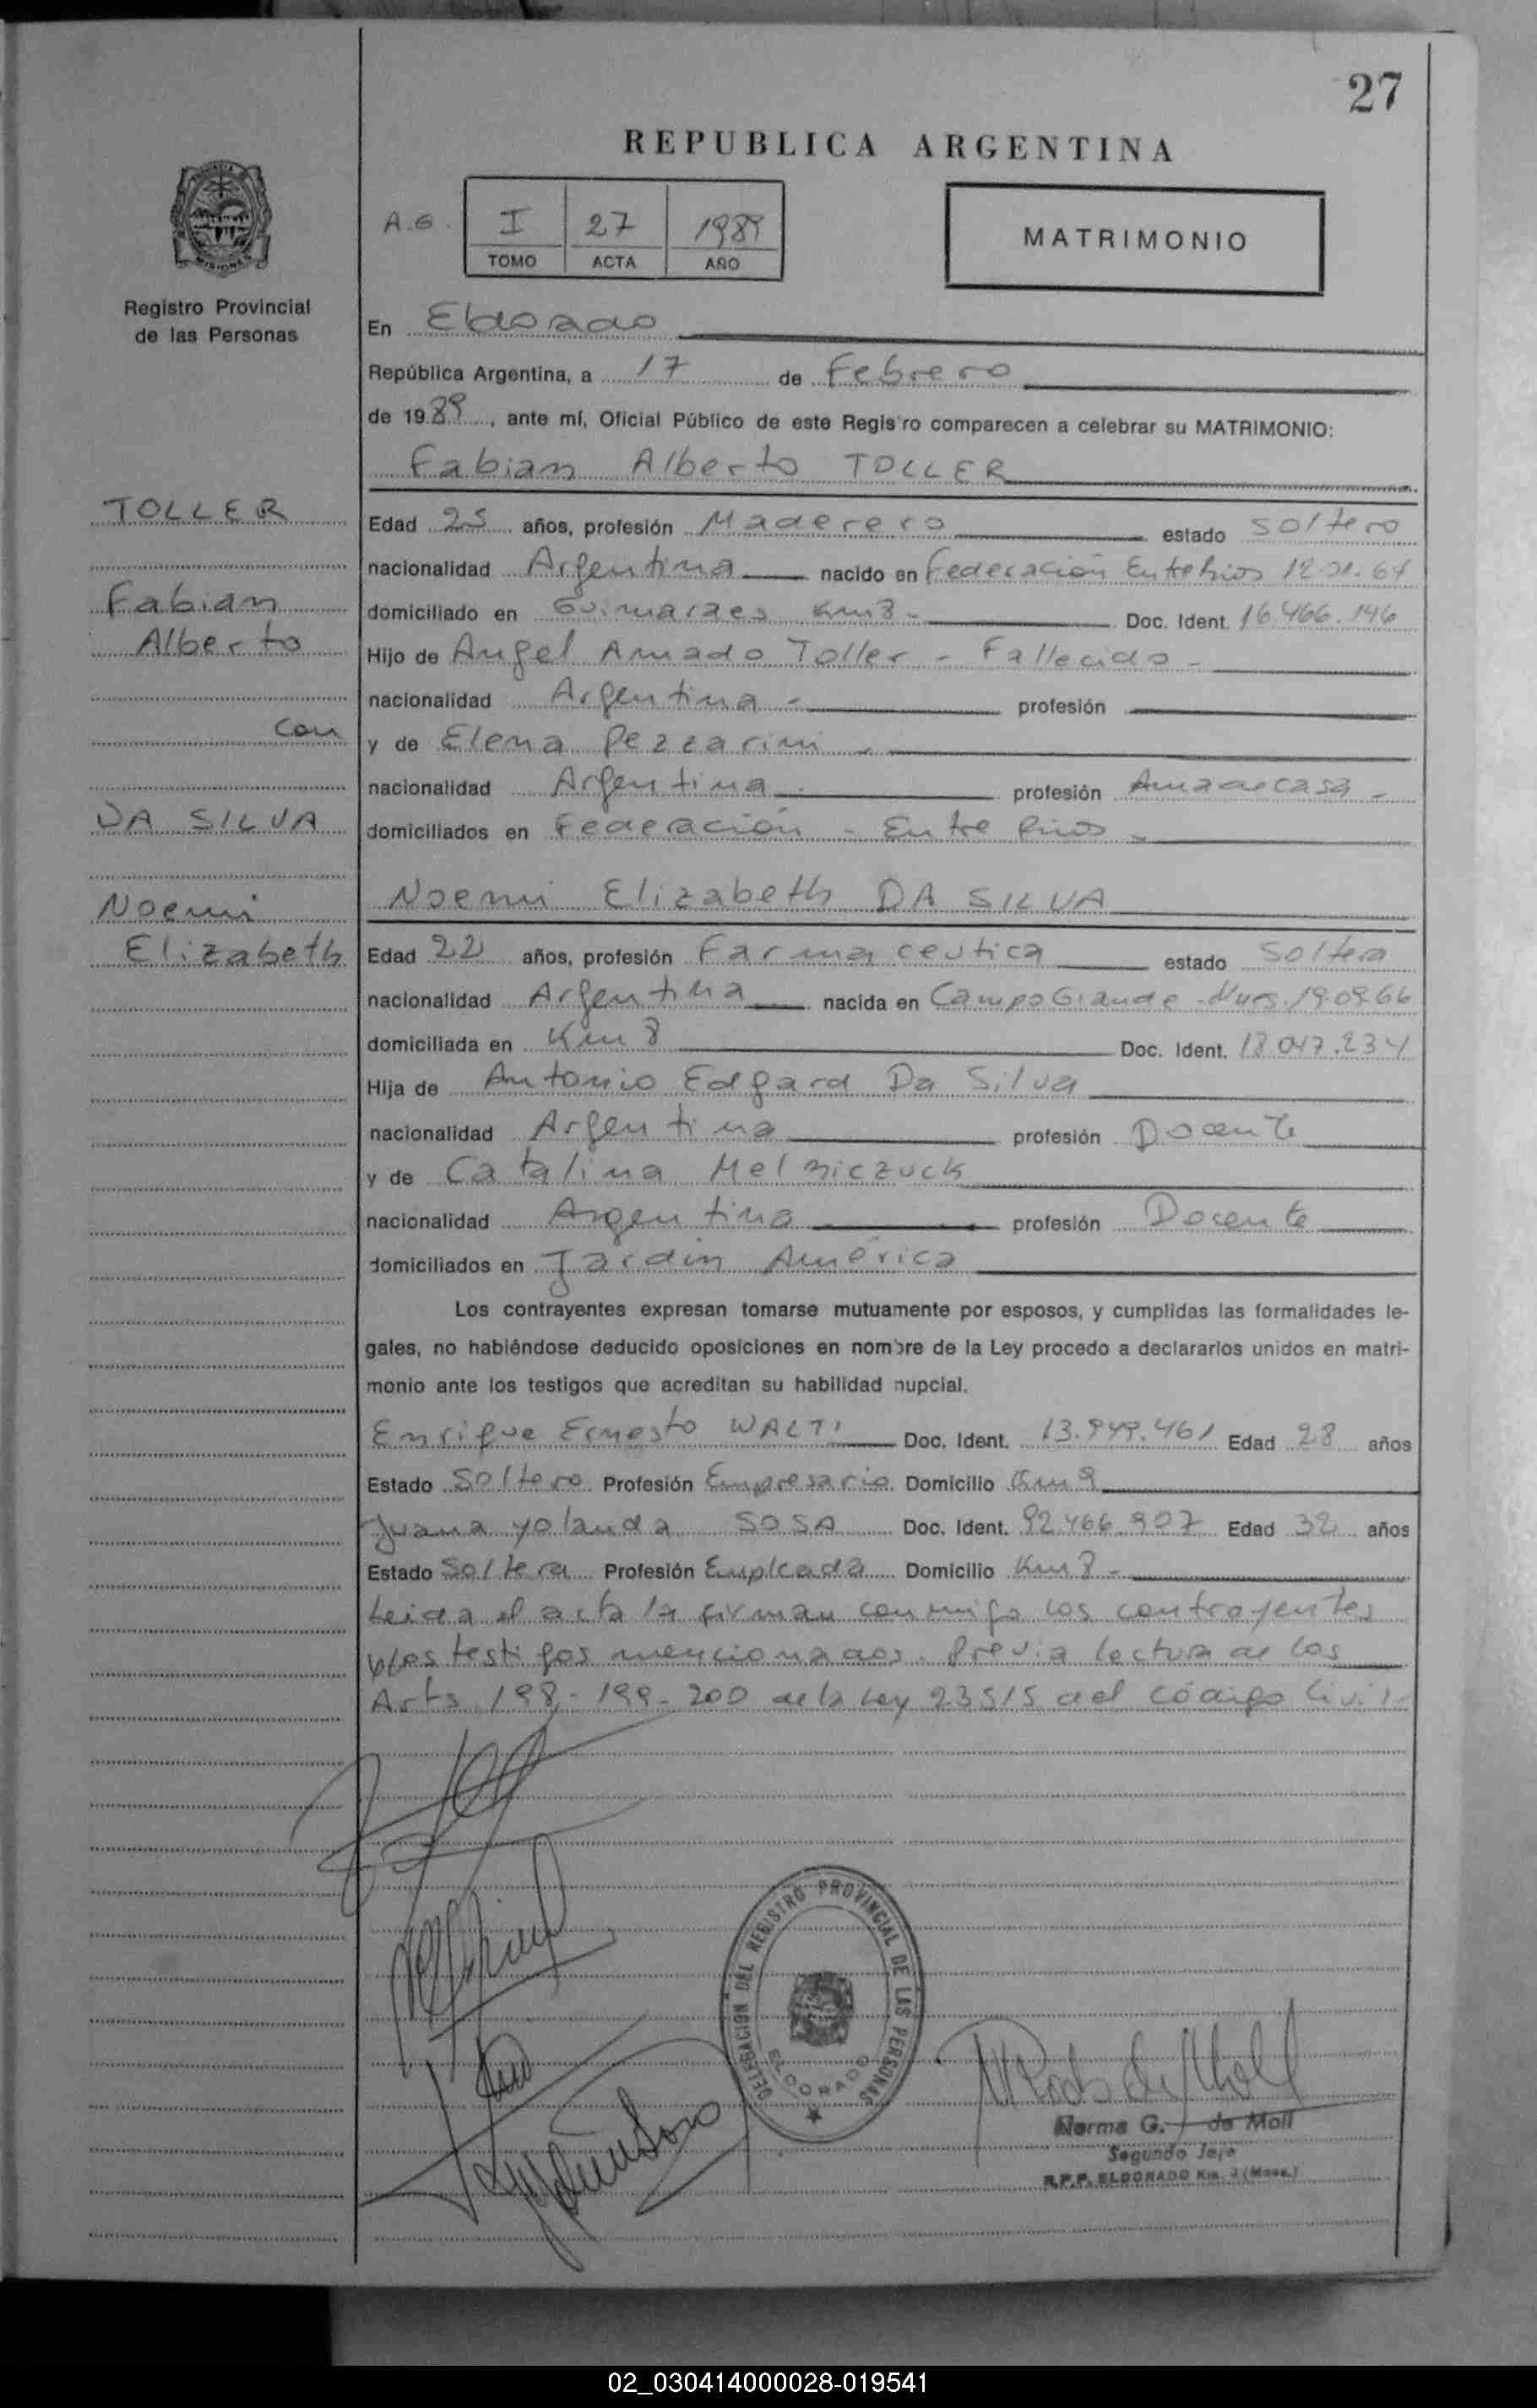 27
REPUBLICA ARGENTINA
A.G. I 27 1989
TOMO ACTA AÑO
MATRIMONIO
Registro Provincial
de las Personas
En Eldorado
República Argentina, a 17 de Febrero
de 1989, ante mí, Oficial Público de este Registro comparecen a celebrar su MATRIMONIO:
Fabian Alberto TOLLER
TOLLER
Fabian
Alberto
con
DA SILVA
Noemi
Elizabeth
Edad 25 años, profesión Maderero estado soltero
nacionalidad Argentina nacido en Federación Entre Rios 12.01.64
domiciliado en Guimaraes Km 8 - Doc. Ident. 16.466.146
Hijo de Angel Amado Toller - Fallecido -
nacionalidad Argentina - profesión
y de Elena Pezzarini -
nacionalidad Argentina - profesión Ama de casa -
domiciliados en Federación - Entre Rios -
Noemi Elizabeth DA SILVA
Edad 22 años, profesión Farmaceutica estado Soltera
nacionalidad Argentina nacida en Campo Grande - Mnes. 19.09.66
domiciliada en Km 8 Doc. Ident. 18.047.234
Hija de Antonio Edgard Da Silva
nacionalidad Argentina profesión Docente
y de Catalina Melniczuck
nacionalidad Argentina profesión Docente
domiciliados en Jardin América
Los contrayentes expresan tomarse mutuamente por esposos, y cumplidas las formalidades le-
gales, no habiéndose deducido oposiciones en nombre de la Ley procedo a declararlos unidos en matri-
monio ante los testigos que acreditan su habilidad nupcial.
Enrique Ernesto WALTI Doc. Ident. 13.949.461 Edad 28 años
Estado Soltero Profesión Empresario Domicilio Km 9
Juana Yolanda SOSA Doc. Ident. 92.466.907 Edad 32 años
Estado Soltera Profesión Empleada Domicilio Km 8 -
Leida el acta la firman conmigo los contrayentes
y los testigos mencionados. Previa lectura de los
Arts 198 - 199 - 200 de la Ley 23515 del Código Civil -
DELEGACION DEL REGISTRO PROVINCIAL DE LAS PERSONAS
ELDORADO
Norma G. de Moll
Segundo Jefe
R.P.P. ELDORADO Km. 3 (Mnes.)
02_030414000028-019541